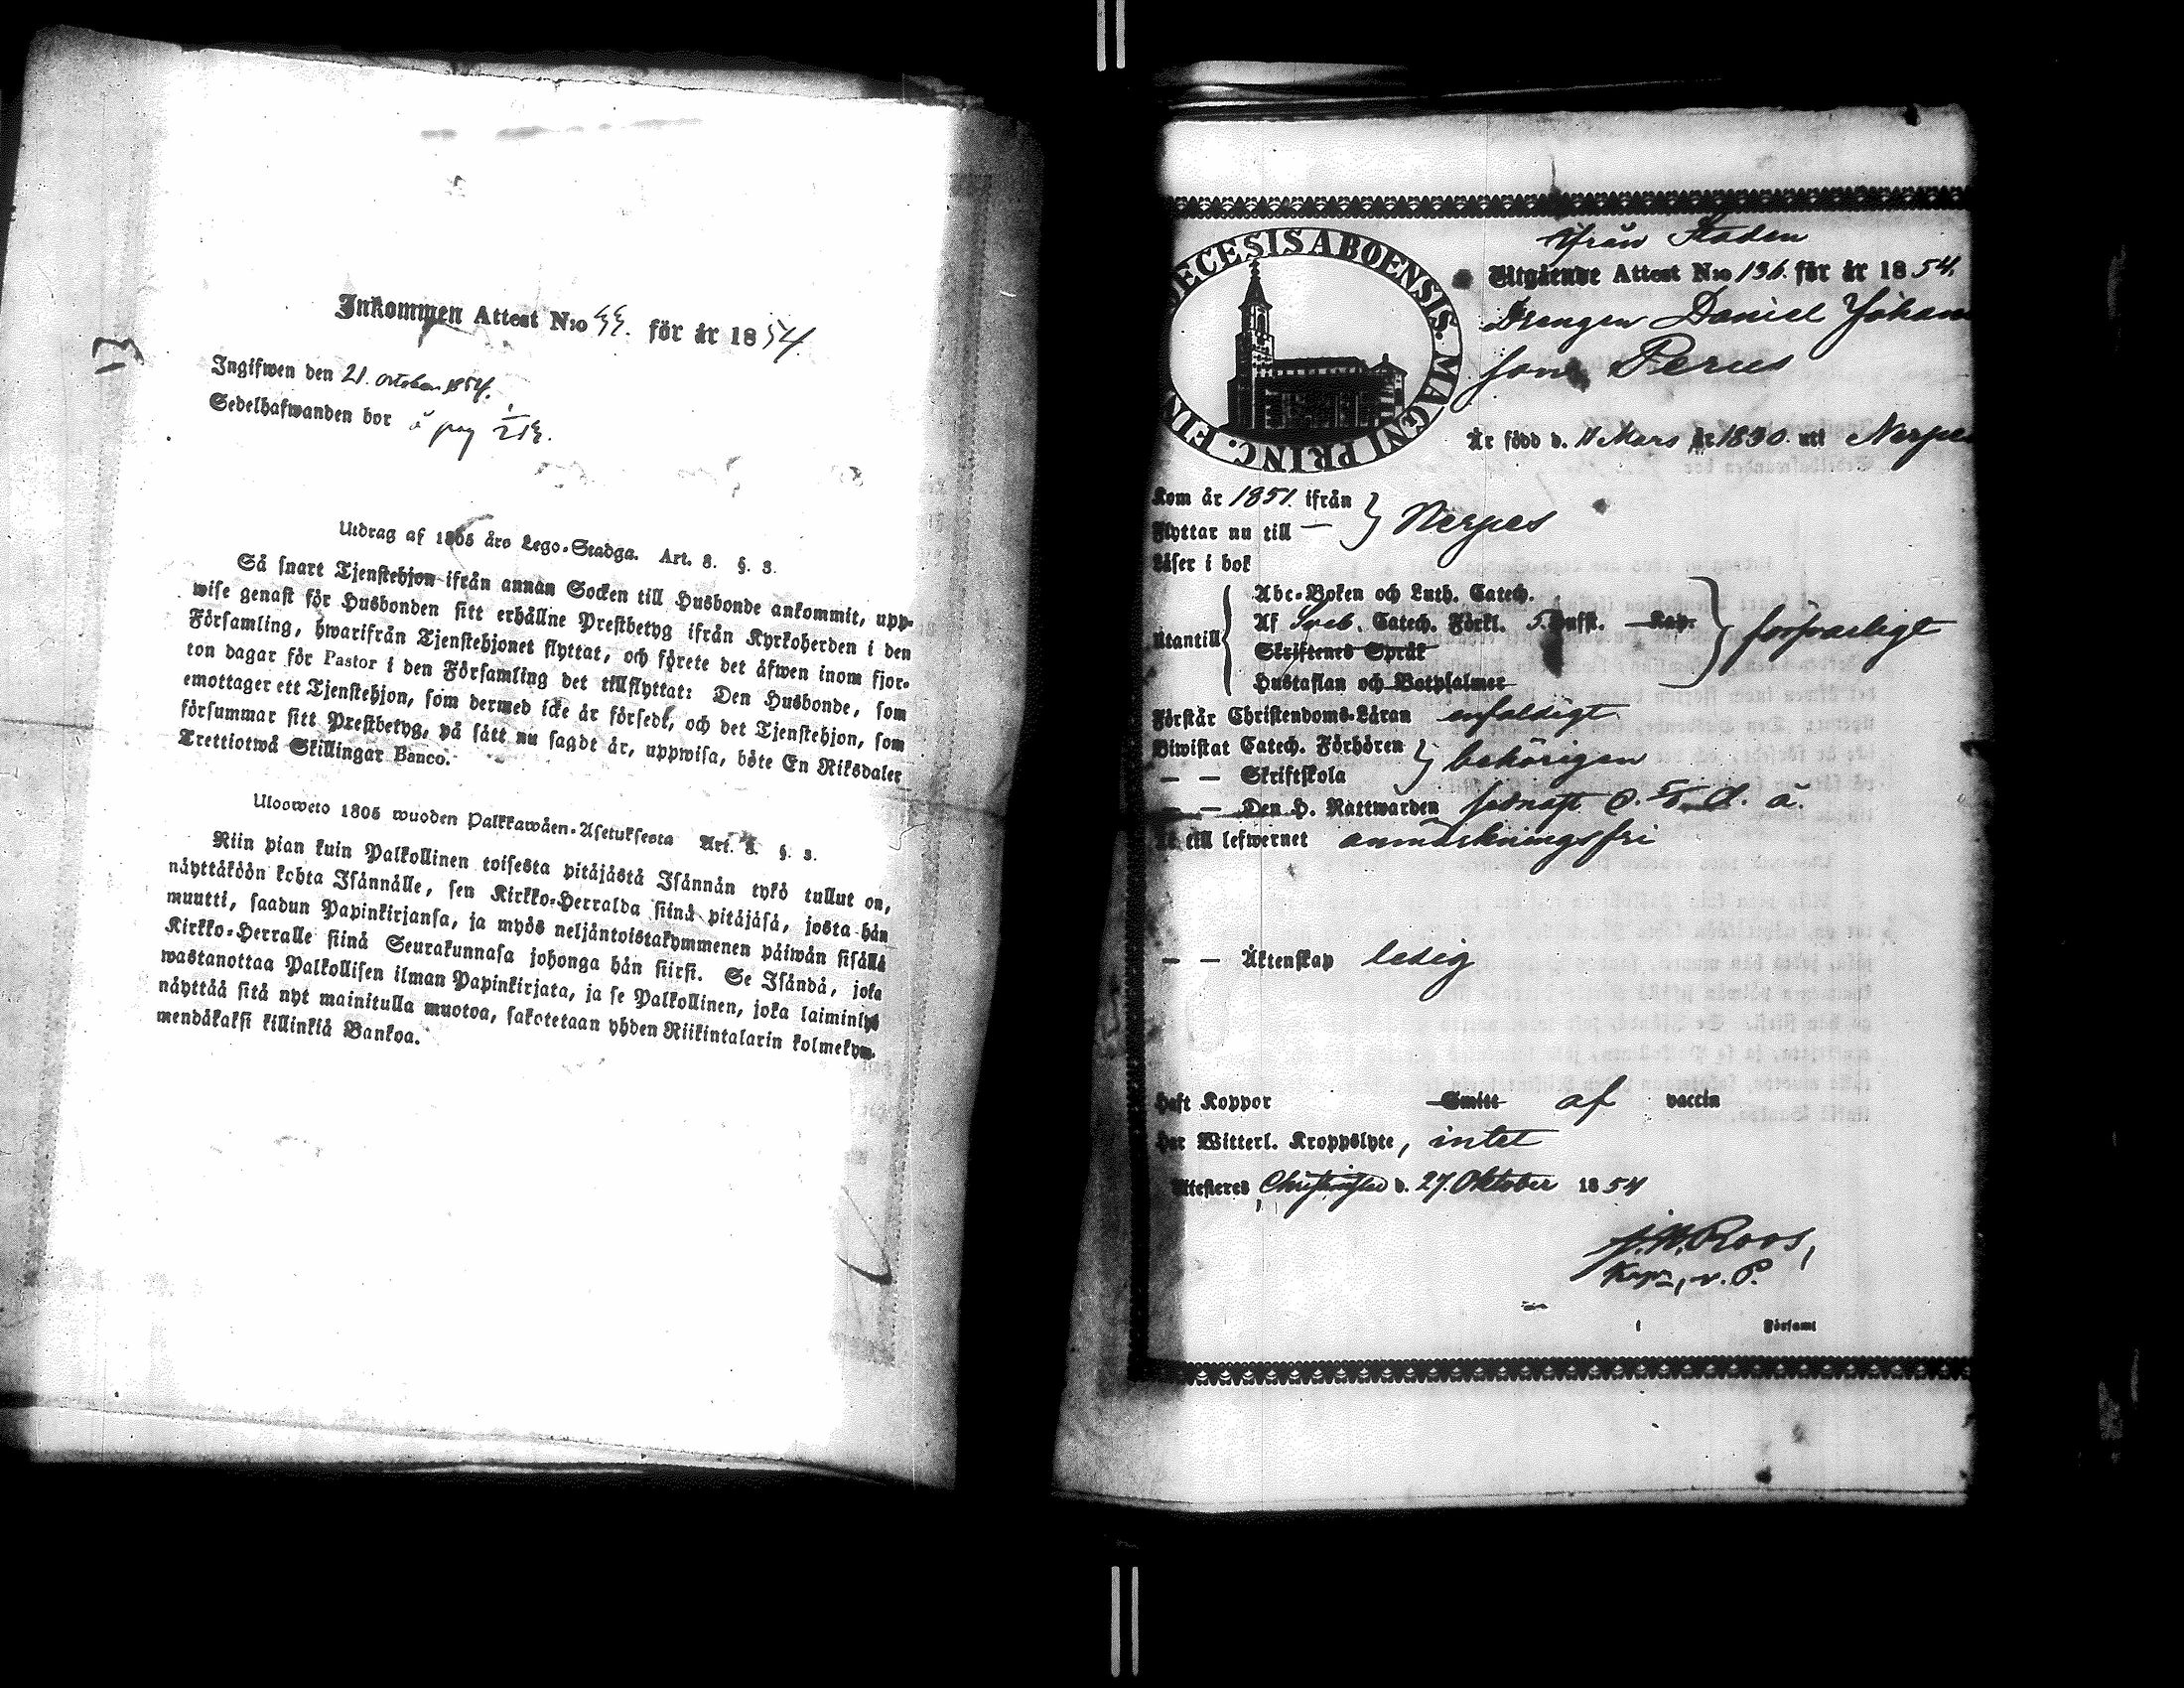 Inkommen Attest N:o för år 1854.
13
Ingifwen den 21. october 1854.
Sedelhafwanden bor å pag
Utdrag af 1805 års Lego-Stadga. Art. 8. §. 3.
Så snart Tjenstehjon ifrån annan Socken till Husbonde ankommit, upp-
wise genast för Husbonden sitt erhållne Prestbetyg ifrån Kyrkoherden i den
Församling, hwarifrån Tjenstehjonet flyttat, och förete det åfwen inom fjor-
ton dagar för Pastor i den Församling det tillflyttat: Den Husbonde, som
emottager ett Tjenstehjon, som dermed icke är försedt, och det Tjenstehjon, som
försummar sitt Prestbetyg, på sått nu sagdt år, uppwisa, böte En Riksdaler
Trettiotwå Skillingar Banco.
Ulosweto 1805 wuoden Palkkawåen-Asetuksesta Art. 8. §. 3.
Niin pian kuin Palkollinen toisesta pitåjåstå Isånnån tykö tullut on,
nåyttåköön kohta Isånnålle, sen Kirkko-Herralda siinå pitåjåså, josta hån
muutti, saadun Papinkirjansa, ja myös neljåntoistakymmenen påiwån sisållå
Kirkko-Herralle siinå Seurakunnasa johonga hån siirsi. Se Isåndå, joka
wastanottaa Palkollisen ilman Papinkirjata, ja se Palkollinen, joka laiminlyö
nåyttåå sitå nyt mainitulla muotoa, sakotetaan yhden Riikintalarin kolmekym-
mendåkaksi killinkiå Bankoa.
DIŒCESIS ABOENSIS. MAGNI PRINC. FIN
ifrån Staden
Utgående Attest N:o 136. för år 1854.
Drengen Daniel Johans
son Perus
Är född d. 11 Mars år 1830. uti Nerpes
Kom år 1851. ifrån
Flyttar nu till — } Nerpes
Läser i bok
Abc-Boken och Luth. Catech.
Utantill { Af Sveb. Catech. Förkl. 5. Hufst. Kap. } försvarligt
Skriftenes Språk
Hustaflan och Botpsalmer
Förstår Christendoms-Läran enfaldigt
Biwistat Catech. Förhören } behörigen
— — Skriftskola
— — Den H. Nattwarden sednast d. å.
Är till lefwernet anmärkningsfri
— — Äktenskap ledig
Haft Koppor Smitt af vaccin
Har Witterl. Kroppslyte, intet
Attesteres Christinestad d. 27. Oktober 1854
Roos,
Kapn, v. P.
i Församl